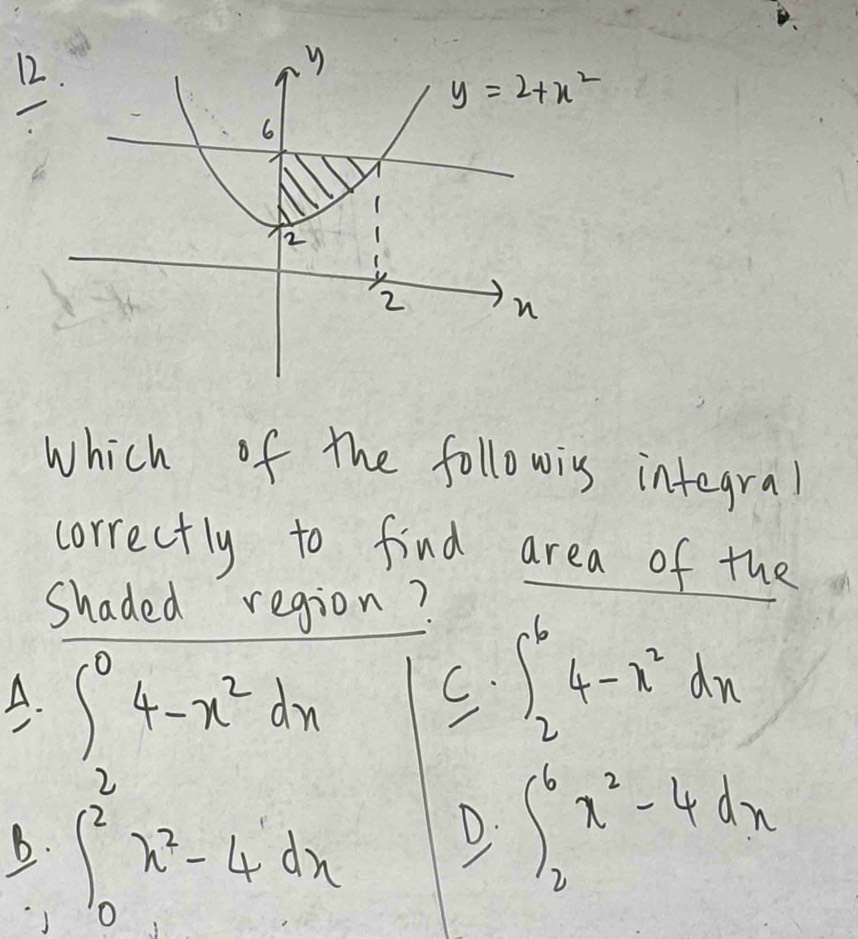 12.
y
y = 2+x²
6
2
2
x
Which of the followig integral
correctly to find area of the
Shaded region?
A. ∫₂⁰ 4-x² dx
B. ∫₀² x²-4 dx
C. ∫₂⁶ 4-x² dx
D. ∫₂⁶ x²-4 dx